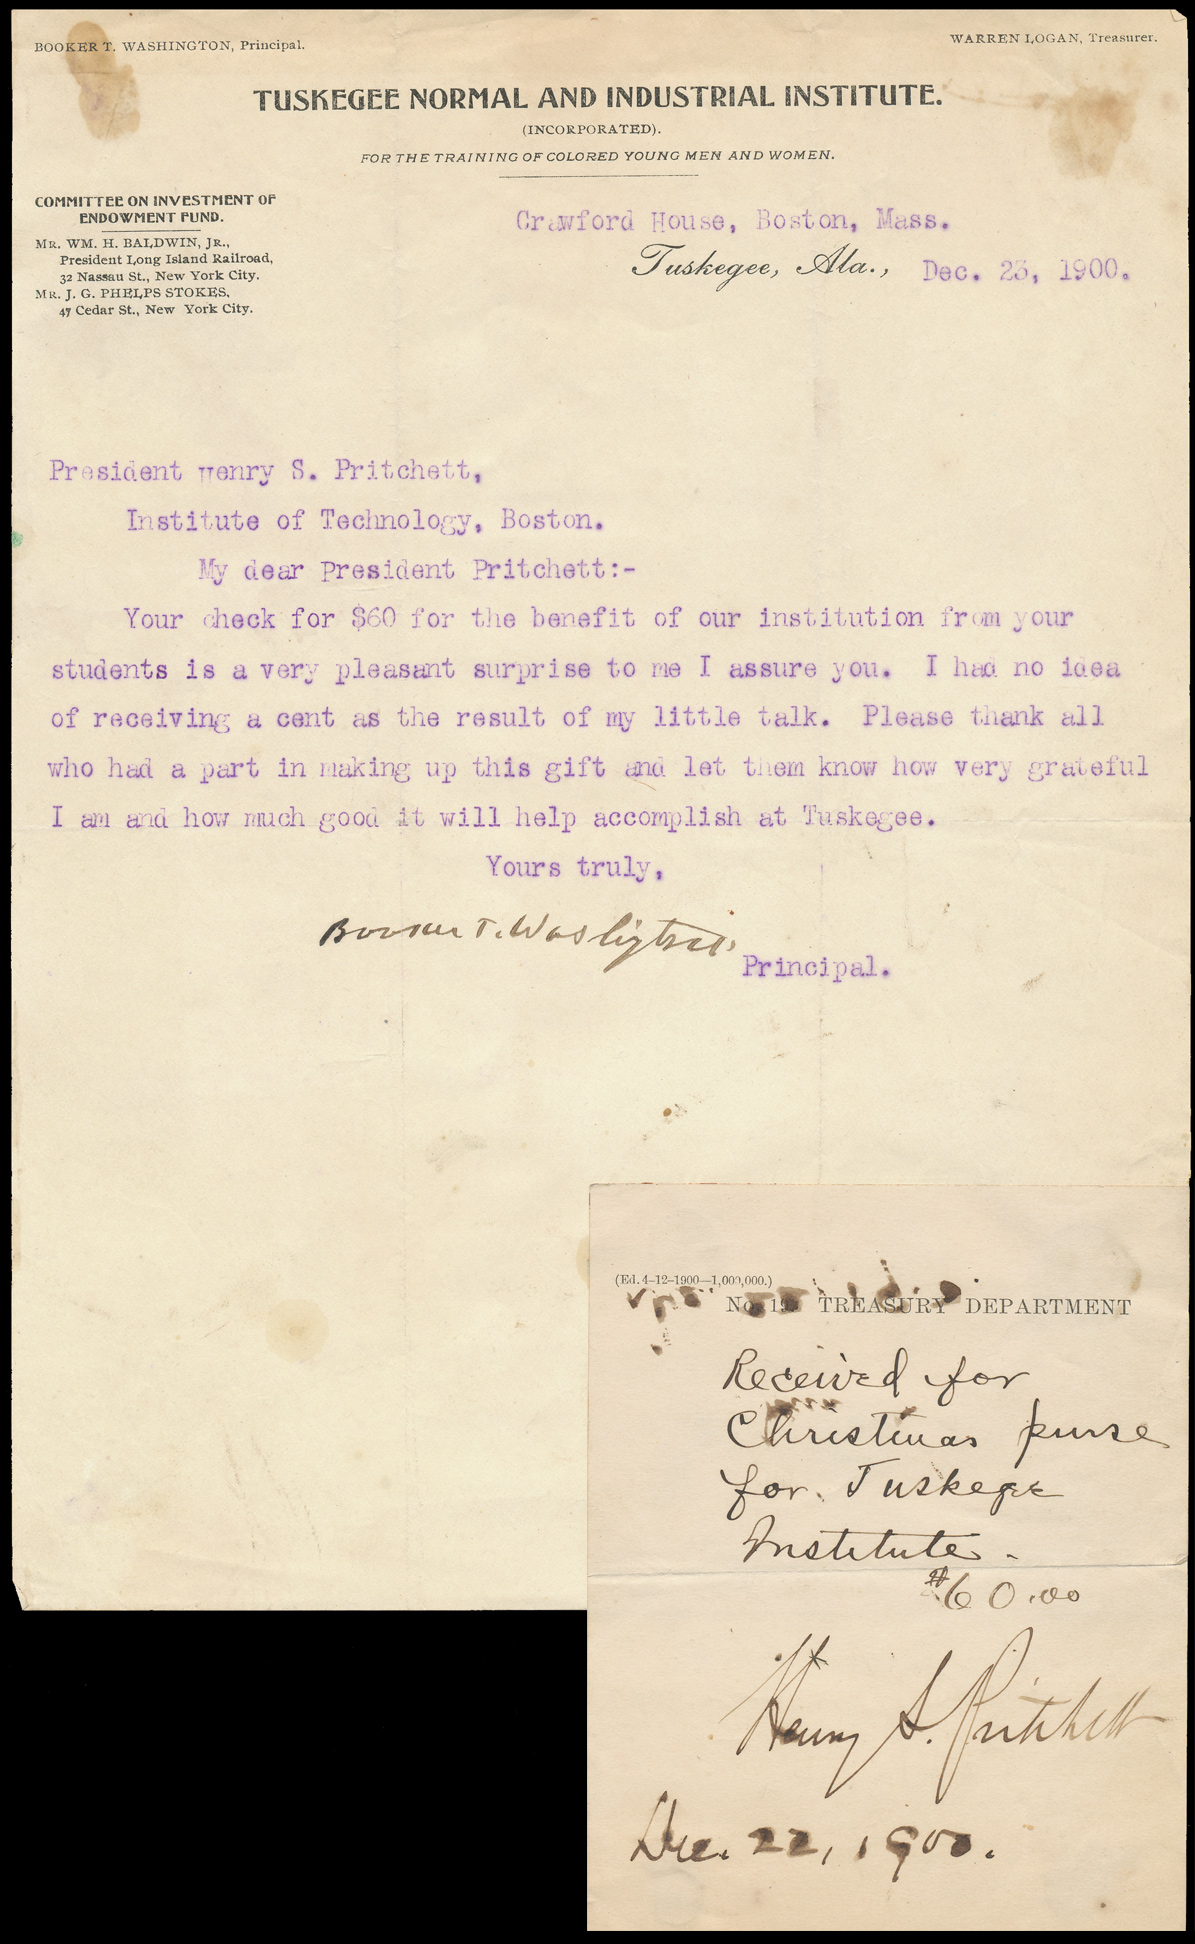 BOOKER T. WASHINGTON, Principal.
WARREN LOGAN, Treasurer.
TUSKEGEE NORMAL AND INDUSTRIAL INSTITUTE.
(INCORPORATED).
FOR THE TRAINING OF COLORED YOUNG MEN AND WOMEN.
COMMITTEE ON INVESTMENT OF
ENDOWMENT FUND.
MR. WM. H. BALDWIN, JR.,
President Long Island Railroad,
32 Nassau St., New York City.
MR. J. G. PHELPS STOKES,
47 Cedar St., New York City.
Crawford House, Boston, Mass.
Tuskegee, Ala., Dec. 23, 1900.
President Henry S. Pritchett,
Institute of Technology, Boston.
My dear President Pritchett:-
Your check for $60 for the benefit of our institution from your
students is a very pleasant surprise to me I assure you. I had no idea
of receiving a cent as the result of my little talk. Please thank all
who had a part in making up this gift and let them know how very grateful
I am and how much good it will help accomplish at Tuskegee.
Yours truly,
Booker T. Washington
Principal.
(Ed. 4-12-1900—1,000,000.)
TREASURY DEPARTMENT
Received for
Christmas purse
for Tuskegee
Institute.
$60.00
Henry S. Pritchett
Dec. 22, 1900.